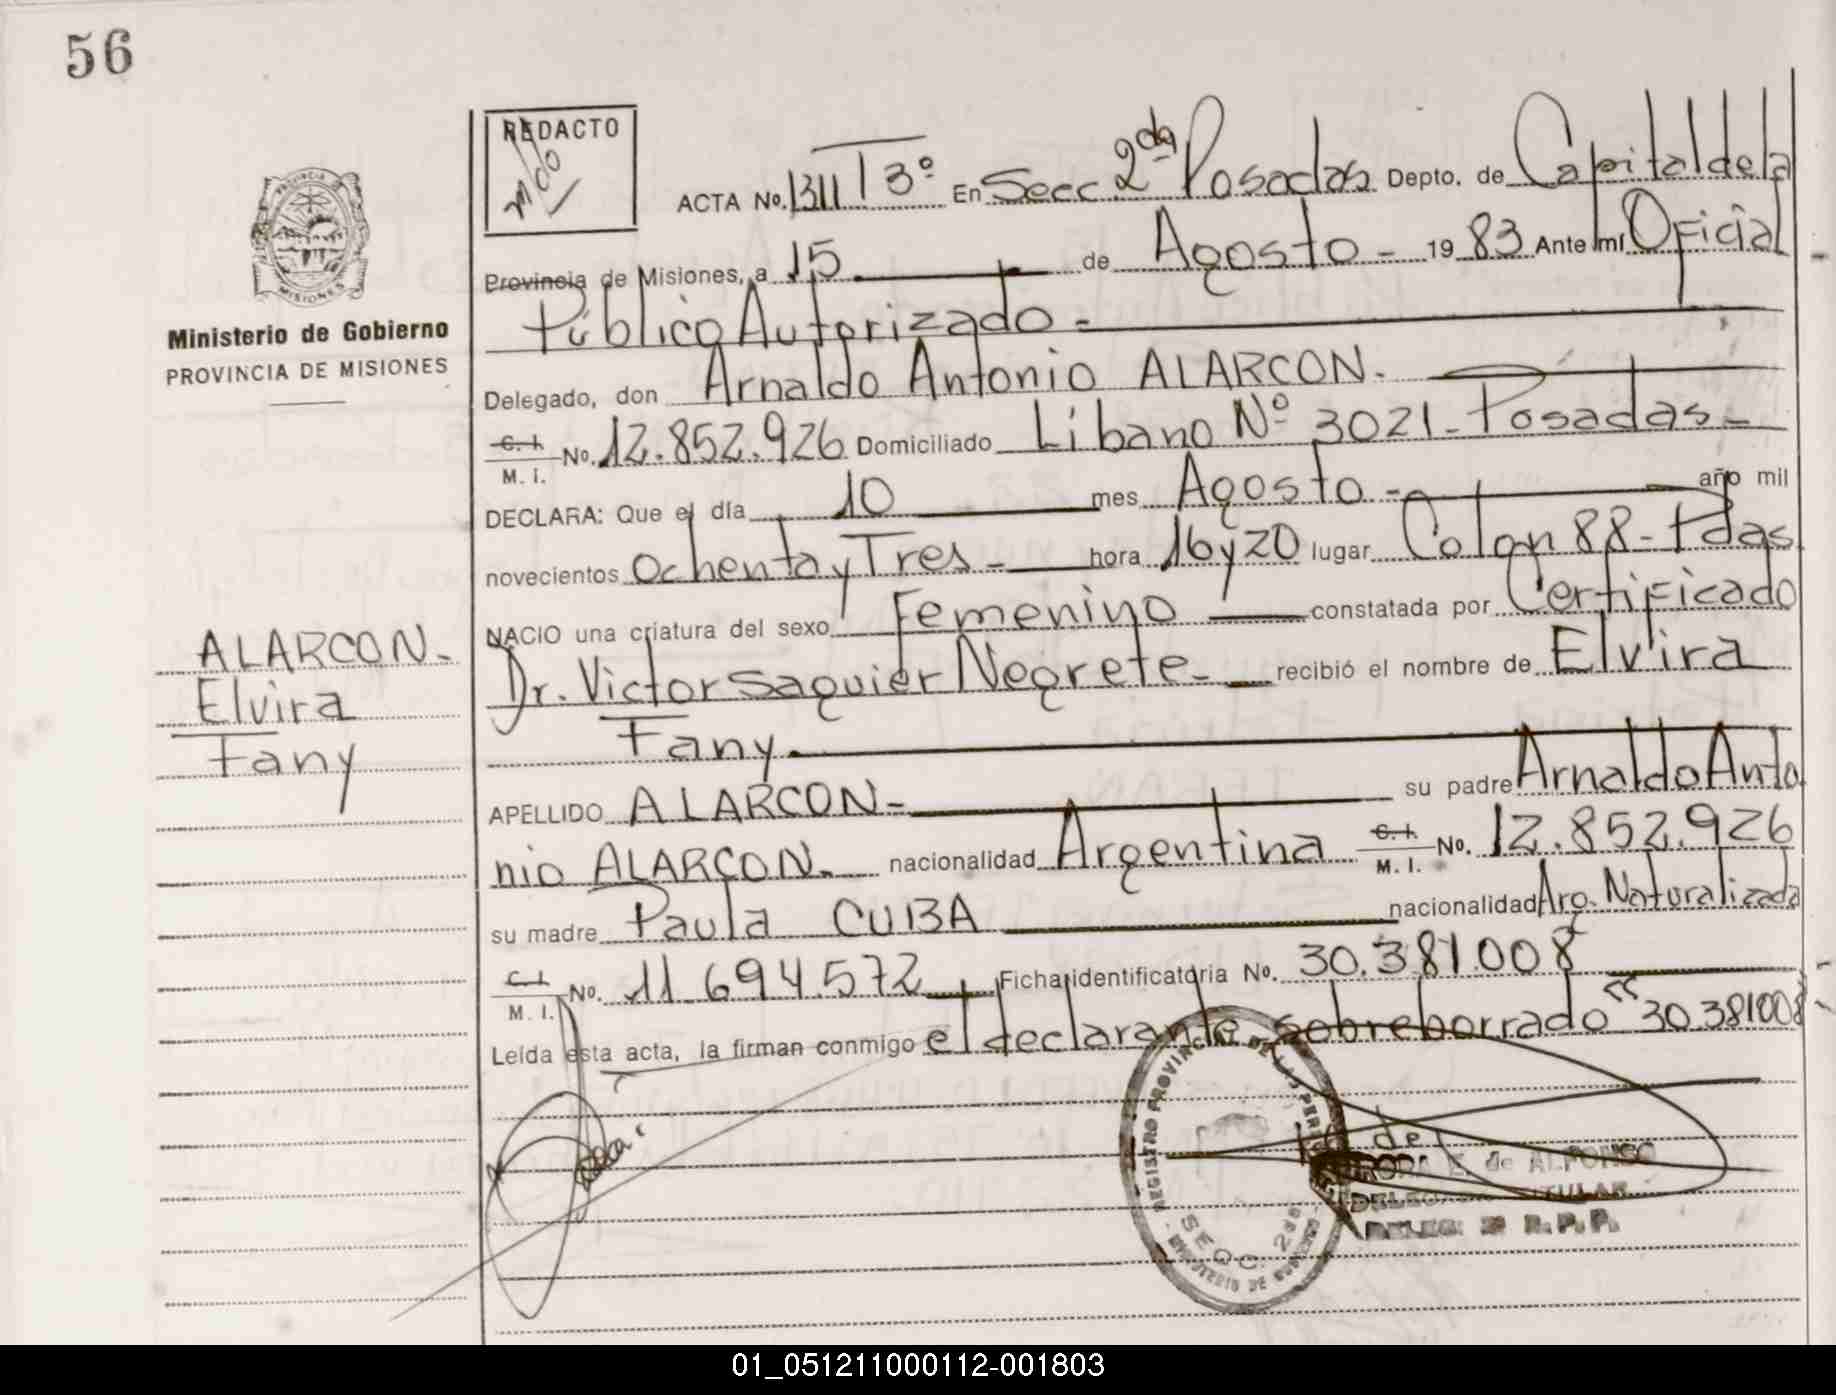 56
REDACTO
ACTA No. 1311 T 3º En Secc 2da Posadas Depto. de Capital de la
Provincia de Misiones, a 15 de Agosto - 19 83 Ante mí Oficial
Público Autorizado -
Delegado, don Arnaldo Antonio ALARCON.
C. I. No. 12.852.926 Domiciliado Libano Nº 3021 - Posadas -
M. I.
DECLARA: Que el día 10 mes Agosto - año mil
novecientos Ochenta y Tres - hora 16 y 20 lugar Colon 88 - Pdas
NACIO una criatura del sexo Femenino constatada por Certificado
Dr. Victor Saguier Negrete - recibió el nombre de Elvira
Fany.
APELLIDO ALARCON - su padre Arnaldo Anto
nio ALARCON. nacionalidad Argentina C. I. No. 12.852.926
M. I.
su madre Paula CUBA nacionalidad Arg. Naturalizada
C. I. No. 11.694.572 Ficha identificatoria No. 30.381.008
M. I.
Leída esta acta, la firman conmigo el declarante sobreborrado " 30.381008
PROVINCIA DE MISIONES
Ministerio de Gobierno
PROVINCIA DE MISIONES
ALARCON -
Elvira
Fany
REGISTRO PROVINCIAL DE LAS PERSONAS
SECC. 2da
MINISTERIO DE GOBIERNO
E. de ALFONSO
DELEGADA TITULAR
R. P. P.
01_051211000112-001803